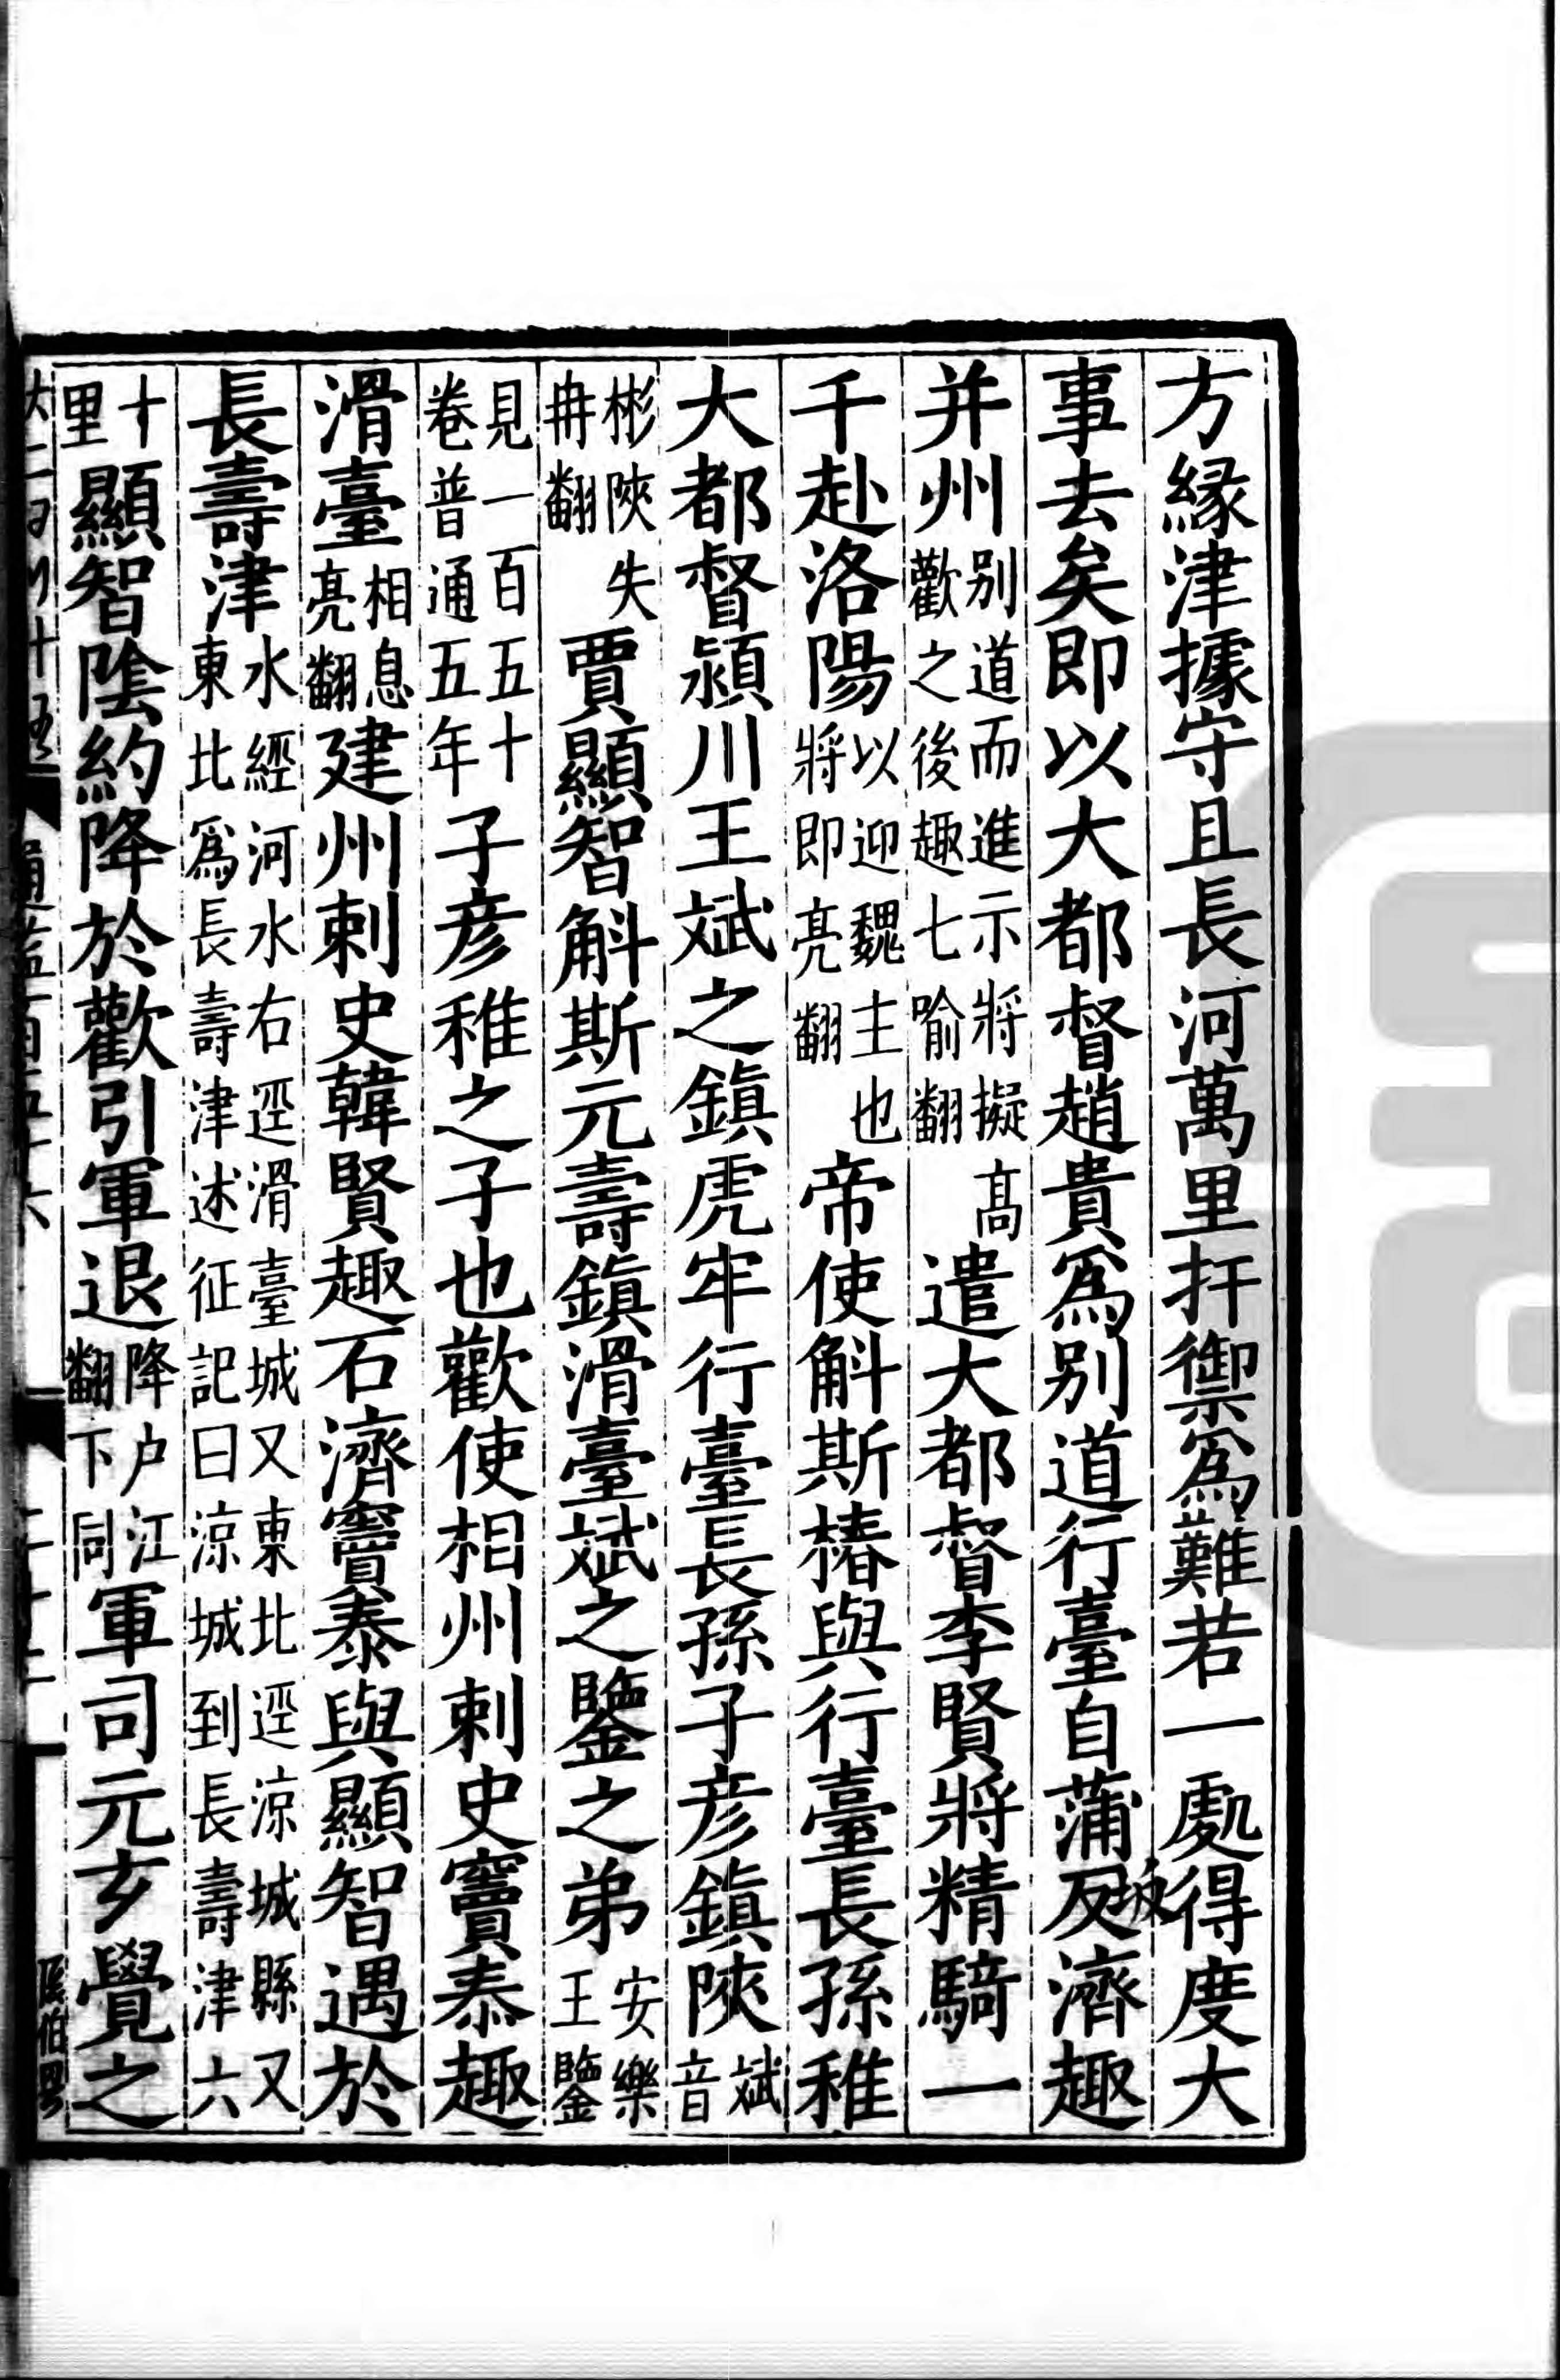 方緣津據守且長河萬里扞禦爲難若一處得度大
事去矣即以大都督趙貴爲别道行臺自蒲反濟趣
并州别道而進示將擬髙歡之後趣七喻翻遣大都督李賢將精騎一
千赴洛陽以迎魏主也將即亮翻帝使斛斯椿與行臺長孫稚
大都督潁川王斌之鎮虎牢行臺長孫子彦鎮陝斌音
彬陝失冉翻賈顯智斛斯元壽鎮滑臺斌之鑒之弟安樂王鑒
見一百五十卷普通五年子彦稚之子也歡使相州刺史竇泰趣
滑臺相息亮翻建州刺史韓賢趣石濟竇泰與顯智遇於
長壽津水經河水右逕滑臺城又東北逕涼城縣又東北爲長壽津述征記曰涼城到長壽津六
十里顯智陰約降於歡引軍退降户江翻下同軍司元玄覺之